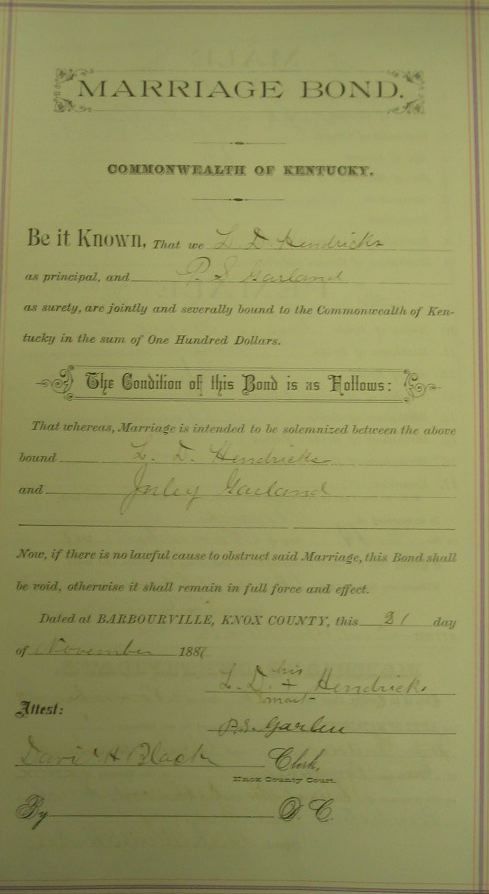 MARRIAGE BOND.
COMMONWEALTH OF KENTUCKY.
Be it Known, That we L. D. Hendricks
as principal, and P. S. Garland
as surety, are jointly and severally bound to the Commonwealth of Ken-
tucky in the sum of One Hundred Dollars.
The Condition of this Bond is as Follows:
That whereas, Marriage is intended to be solemnized between the above
bound L. D. Hendricks
and Garland
Now, if there is no lawful cause to obstruct said Marriage, this Bond shall
be void, otherwise it shall remain in full force and effect.
Dated at BARBOURVILLE, KNOX COUNTY, this 21 day
of November 188
his
L. D. + Hendricks
mark
Attest:
P. S. Garlen
David H Black Clerk,
Knox County Court.
By D. C.